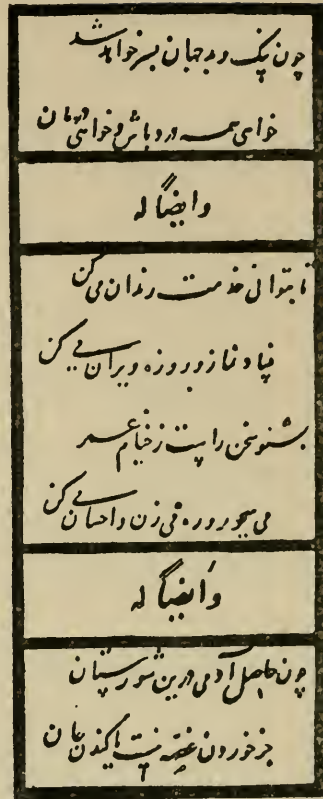 چون نیک و بد جهان بسر خواهد شد
خواهی همه درد باش و خواهی درمان
وایضاً له
تا بتوانی خدمت رندان می کن
بنیاد نماز و روزه ویران می کن
بشنو سخن راست ز خیام عمر
می میخور و ره می زن و احسان می کن
وایضاً له
چون حاصل آدمی درین شورستان
جز خوردن غصه نیست یا کندن جان